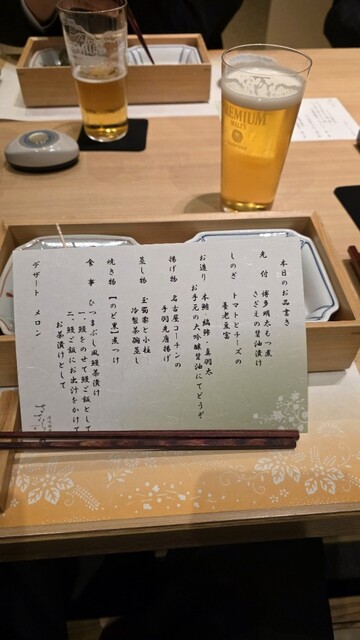 本日のお品書き
先付 博多明太もつ煮
さざえの醤油漬け
しのぎ トマトとチーズの
養老豆富
お造り 本鮪 縞鯵 真羽太
お手元の大吟醸醤油にてどうぞ
揚げ物 名古屋コーチンの
手羽先唐揚げ
蒸し物 玉蜀黍と小柱
冷製茶碗蒸し
焼き物 【のど黒】煮つけ
食事 ひつまぶし風鰻茶漬け
一、鰻をのせて鰻ご飯として
二、鰻ご飯にお出汁をかけて
お茶漬けとして
デザート メロン
PREMIUM
MALT'S